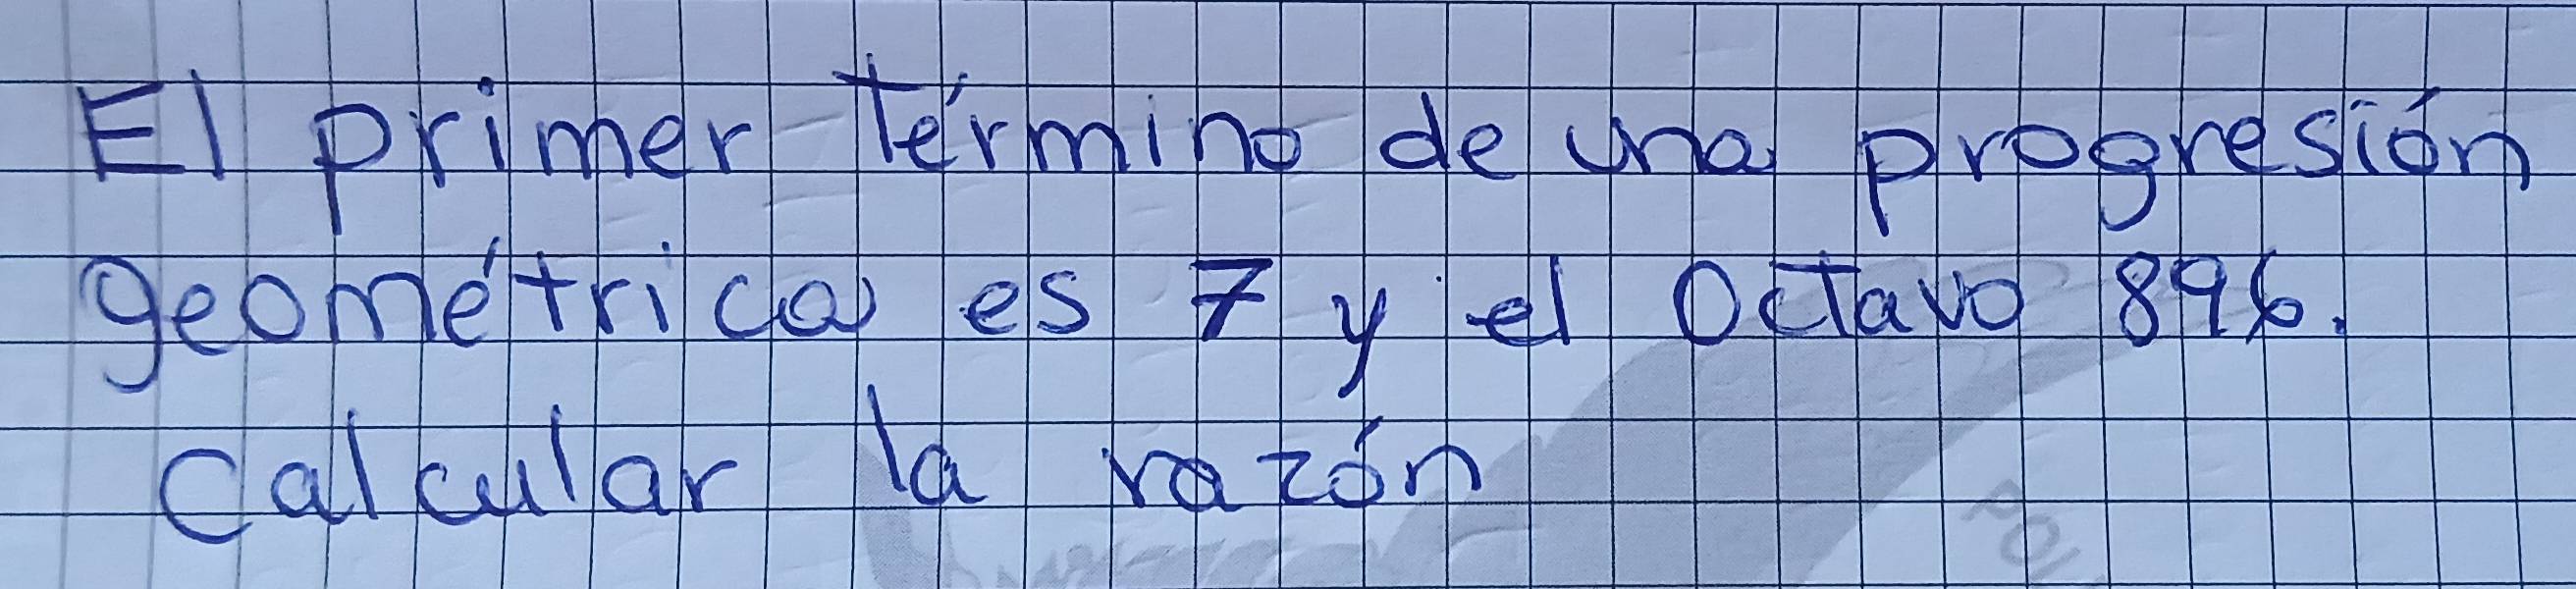 El primer término de una progresión
geométrica es 7 y el Octavo 896.
Calcular la razón